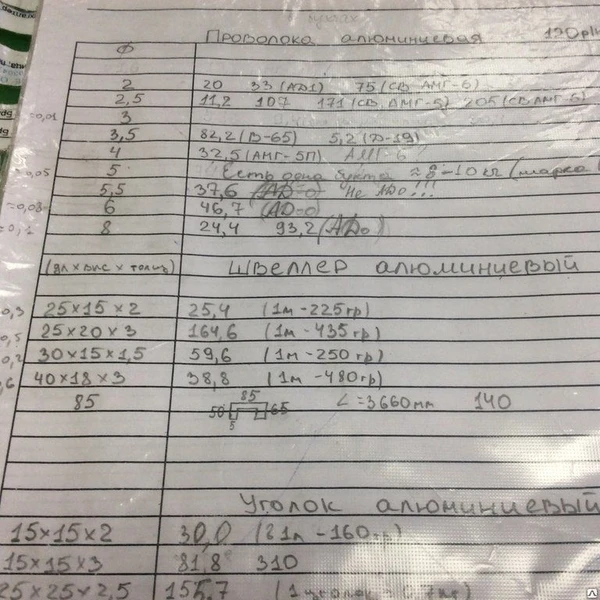 Проволока алюминиевая 120р/
Ф
2 20 33 (АД1) 75 (СВ АМГ-6)
2,5 11,2 107 171 (СВ. АМГ-5) 205 (СВ АМГ-6)
=0,01 3
3,5 82,2 (В-65) 5,2 (Д-19)
4 32,5 (АМГ-5П) АМГ-6
=0,05 5 Есть одна бухта ≈ 8-10 кг (марка
5,5 37,6 (АД-0) не АД0!!!
=0,08 6 46,7 (АД-0)
8 24,4 93,2 (АД0)
(дл х выс х толщ) Швеллер алюминиевый
0,3 25×15×2 25,4 (1м -225гр)
0,5 25×20×3 164,6 (1м -435гр)
0,2 30×15×1,5 59,6 (1м -250гр)
40×18×3 38,8 (1м -480гр)
85 85 50 65 5 L=3660мм 140
Уголок алюминиевый
15×15×2 30,0 (1м -160гр)
15×15×3 81,8 310
25×25×2,5 155,7 (1 уголок